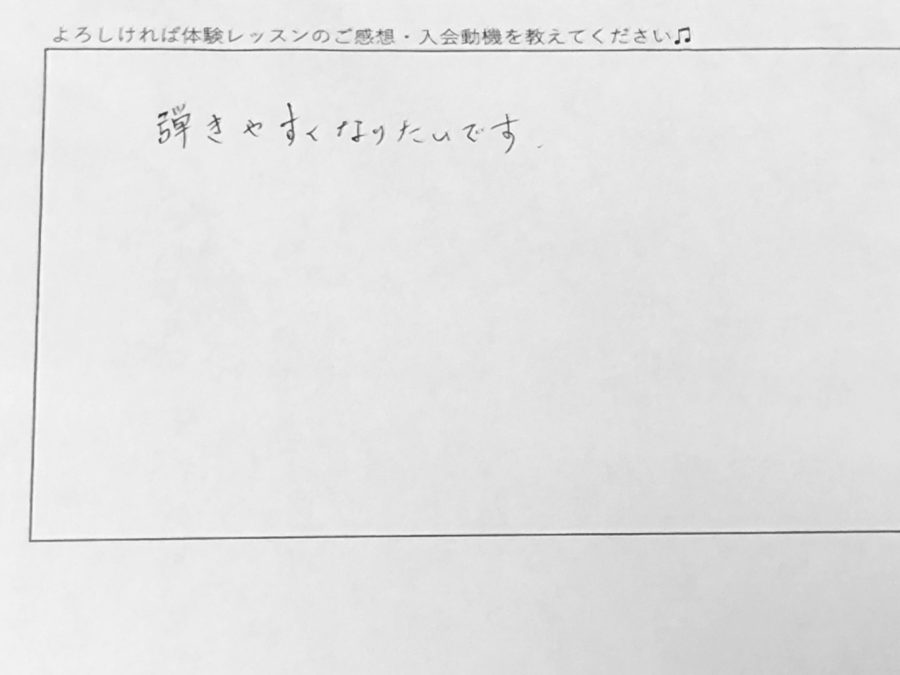 よろしければ体験レッスンのご感想・入会動機を教えてください♫
弾きやすくなりたいです.